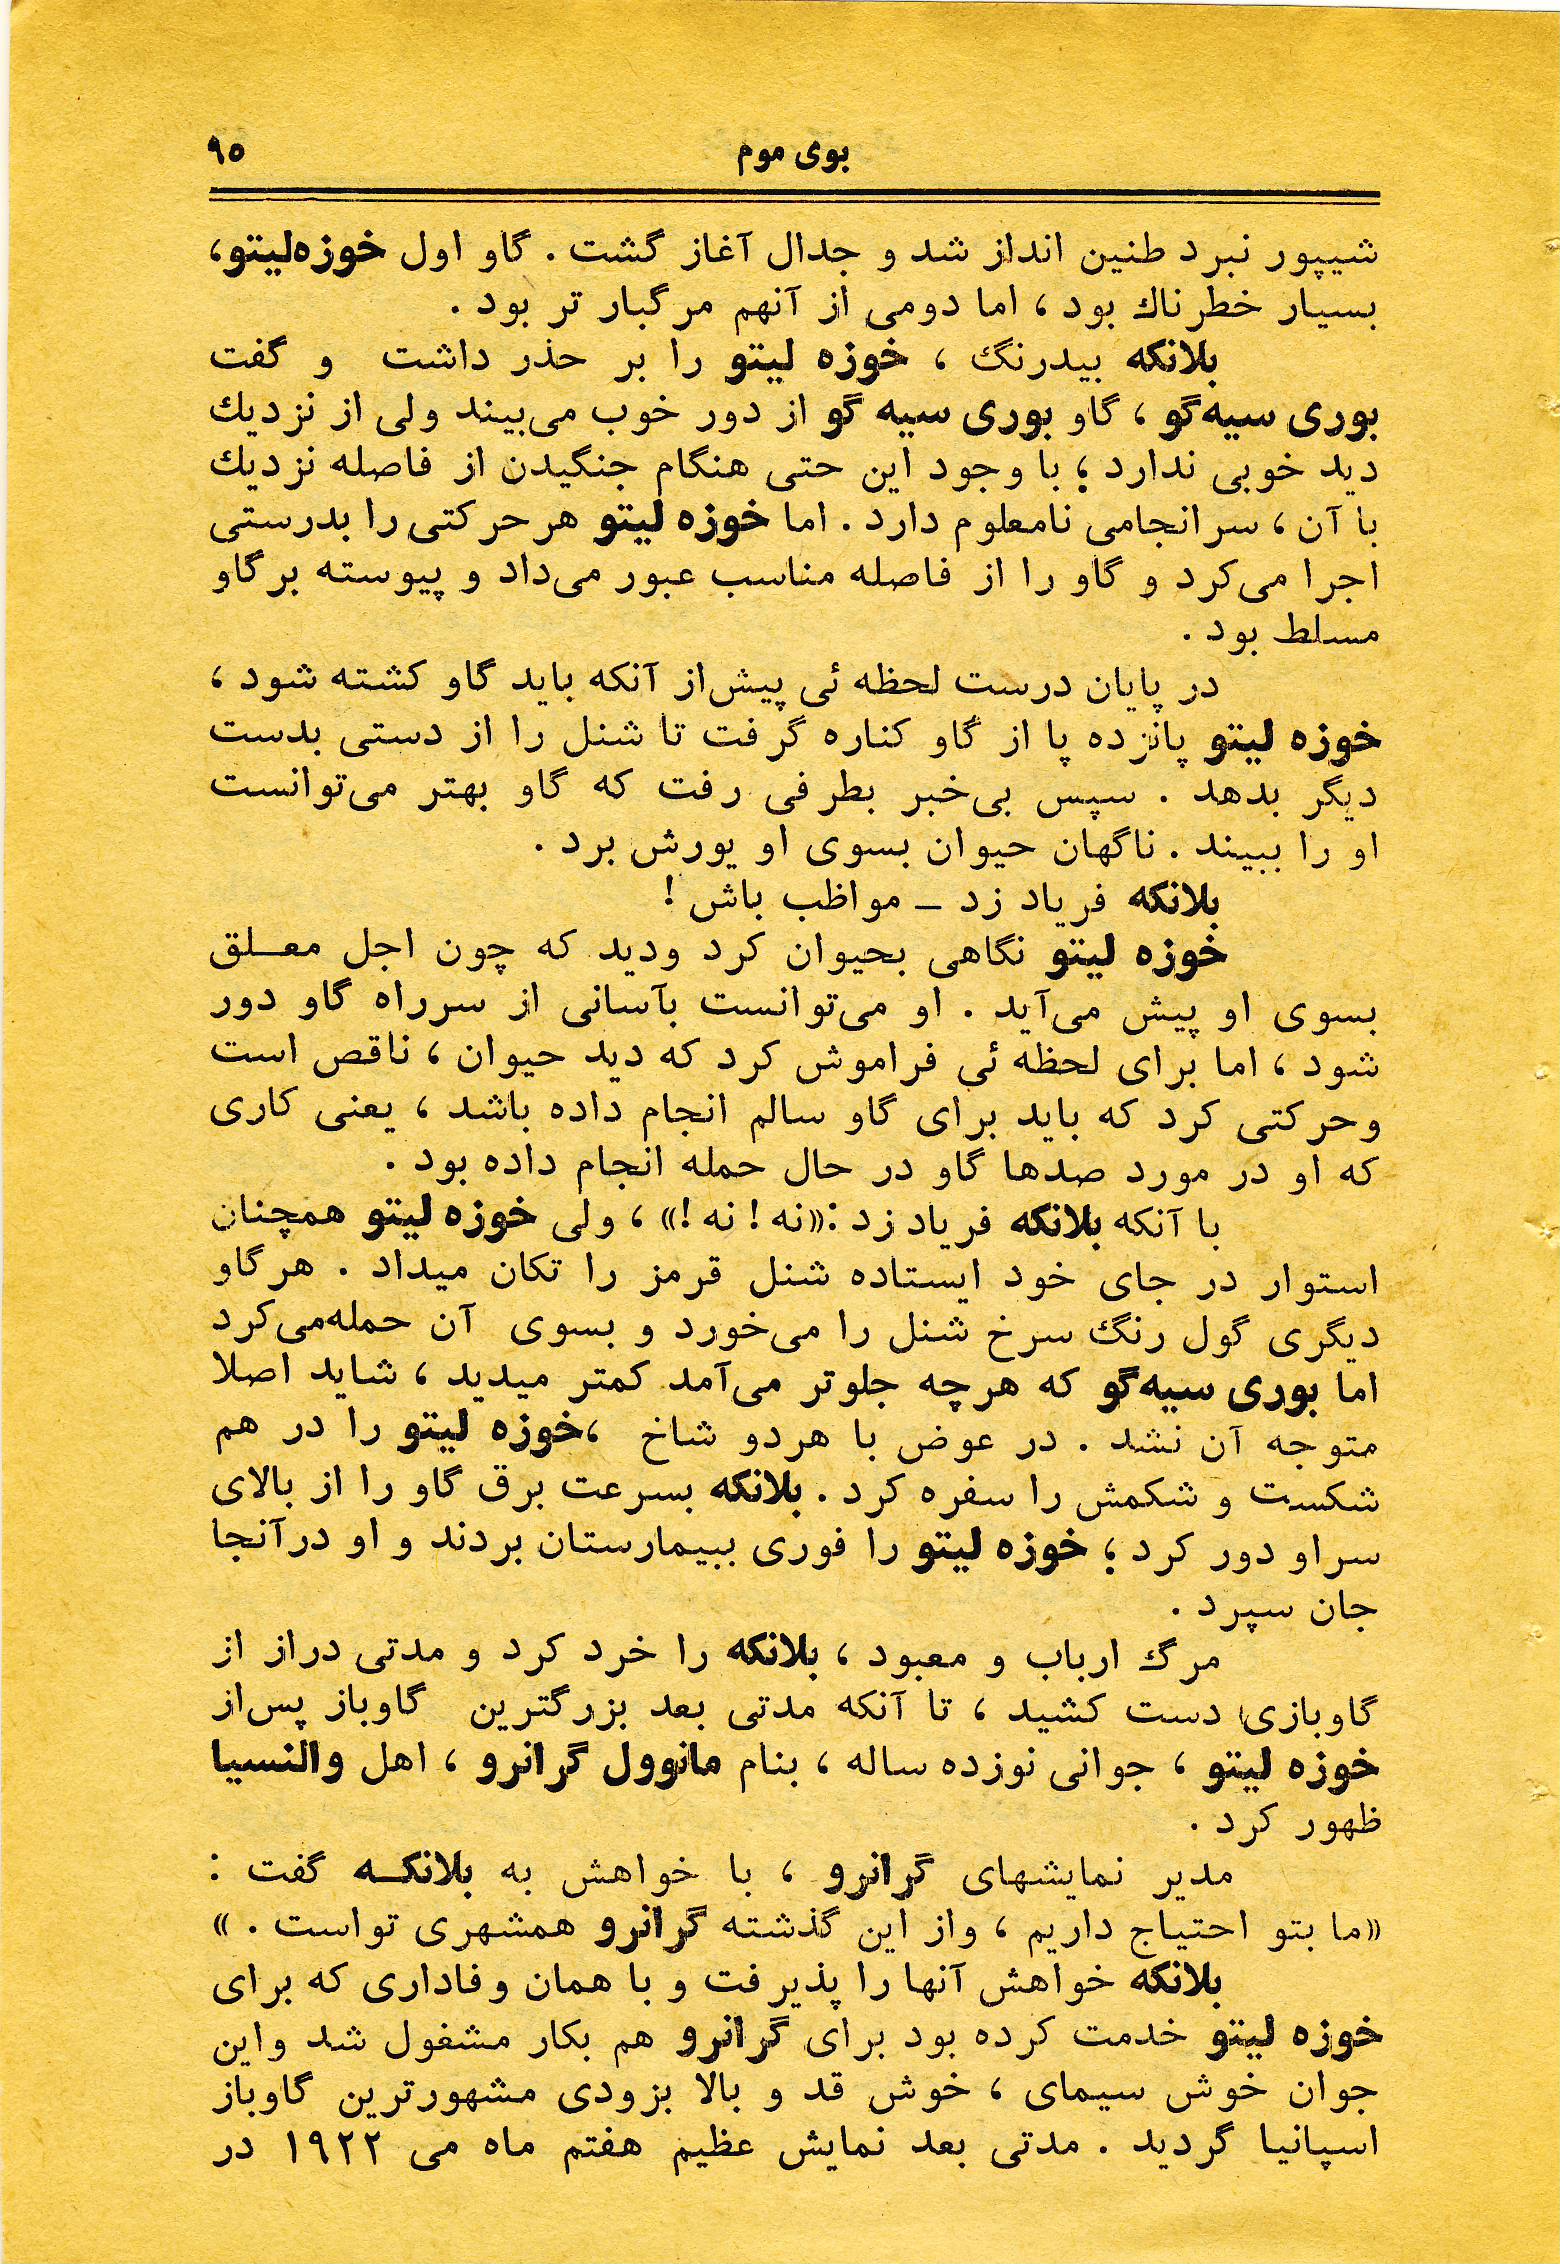 بوی موم
۹۵
شیپور نبرد طنین انداز شد و جدال آغاز گشت . گاو اول خوزه‌لیتو،
بسیار خطرناك بود ، اما دومی از آنهم مرگبار تر بود .
بلانکه بیدرنگ ، خوزه لیتو را بر حذر داشت و گفت
بوری سیه‌گو ، گاو بوری سیه گو از دور خوب می‌بیند ولی از نزدیك
دید خوبی ندارد ؛ با وجود این حتی هنگام جنگیدن از فاصله نزدیك
با آن ، سرانجامی نامعلوم دارد . اما خوزه لیتو هر حرکتی را بدرستی
اجرا می‌کرد و گاو را از فاصله مناسب عبور می‌داد و پیوسته برگاو
مسلط بود .
در پایان درست لحظه ئی پیش‌از آنکه باید گاو کشته شود ،
خوزه لیتو پانزده پا از گاو کناره گرفت تا شنل را از دستی بدست
دیگر بدهد . سپس بی‌خبر بطرفی رفت که گاو بهتر می‌توانست
او را ببیند . ناگهان حیوان بسوی او یورش برد .
بلانکه فریاد زد ــ مواظب باش !
خوزه لیتو نگاهی بحیوان کرد ودید که چون اجل معـلق
بسوی او پیش می‌آید . او می‌توانست بآسانی از سرراه گاو دور
شود ، اما برای لحظه ئی فراموش کرد که دید حیوان ، ناقص است
وحرکتی کرد که باید برای گاو سالم انجام داده باشد ، یعنی کاری
که او در مورد صدها گاو در حال حمله انجام داده بود .
با آنکه بلانکه فریاد زد :«نه ! نه !» ، ولی خوزه لیتو همچنان
استوار در جای خود ایستاده شنل قرمز را تکان میداد . هرگاو
دیگری گول رنگ سرخ شنل را می‌خورد و بسوی آن حمله‌می‌کرد
اما بوری سیه‌گو که هرچه جلوتر می‌آمد کمتر میدید ، شاید اصلا
متوجه آن نشد . در عوض با هردو شاخ ،خوزه لیتو را در هم
شکست و شکمش را سفره کرد . بلانکه بسرعت برق گاو را از بالای
سراو دور کرد ؛ خوزه لیتو را فوری ببیمارستان بردند و او درآنجا
جان سپرد .
مرگ ارباب و معبود ، بلانکه را خرد کرد و مدتی دراز از
گاوبازی دست کشید ، تا آنکه مدتی بعد بزرگترین گاوباز پس‌از
خوزه لیتو ، جوانی نوزده ساله ، بنام مانوول گرانرو ، اهل والنسیا
ظهور کرد .
مدیر نمایشهای گرانرو ، با خواهش به بلانکـه گفت :
«ما بتو احتیاج داریم ، واز این گذشته گرانرو همشهری تواست . »
بلانکه خواهش آنها را پذیرفت و با همان وفاداری که برای
خوزه لیتو خدمت کرده بود برای گرانرو هم بکار مشغول شد واین
جوان خوش سیمای ، خوش قد و بالا بزودی مشهورترین گاوباز
اسپانیا گردید . مدتی بعد نمایش عظیم هفتم ماه می ۱۹۲۲ در